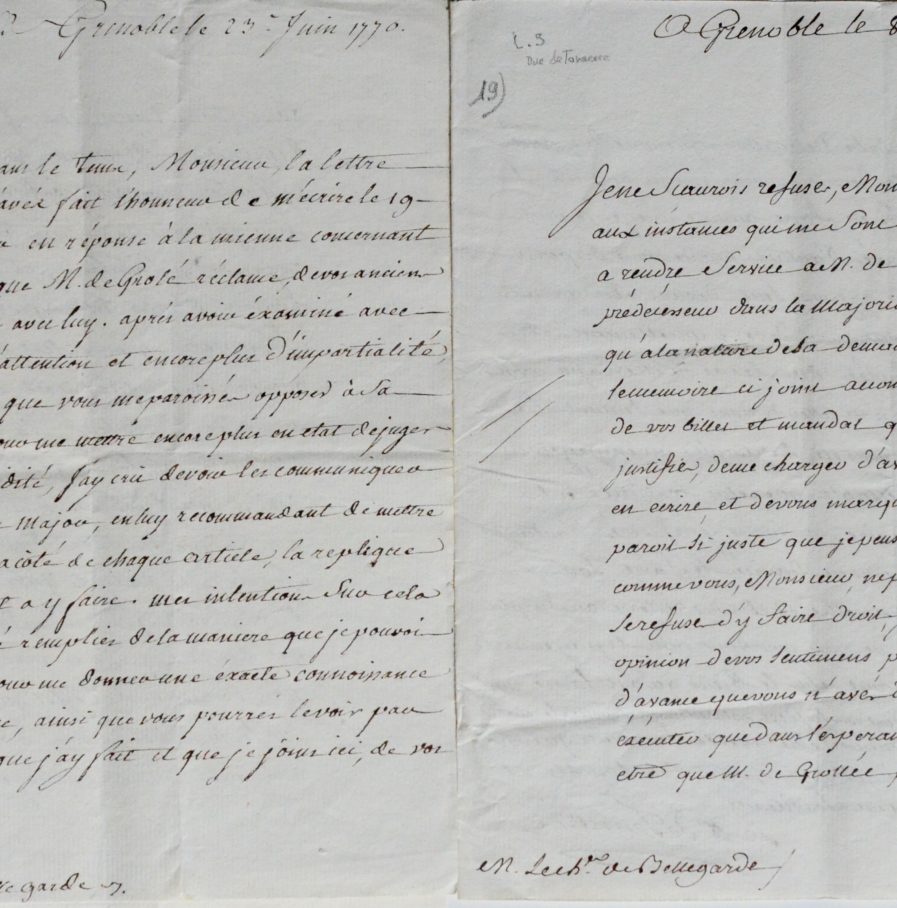 Grenoble le 23 Juin 1770.
dans le tems, Monsieur, la lettre
avés fait l'honneur de m'écrire le 19
en réponse à la mienne concernant
que M. de Grolé réclame, de vos ancien
avec luy. après avoir éxaminé avec
attention et encore plus d'impartialité
que vous me paroissés opposer à sa
pour me mettre encore plus en etat de juger
idité, j'ay crû devoir les communiquer
major, en luy recommandant de mettre
a côté de chaque article, la replique
a y faire. mes intentions Sur cela
é remplies de la maniere que je pouvoi
pour me donner une éxacte connoissance
e, ainsi que vous pourrés le voir par
que j'ay fait et que je joins ici, de vos
lle garde
L.3
Duc de Tonnerre
19)
A Grenoble le 8
Je ne Scaurois refuser, Mon
aux instances qui me Sont
a rendre Service a M. de
prédécesseur dans la Majori
qu'a la nature de Sa dema
le memoire ci joint accom
de vos billets et mandat q
justifie, de me charger d'av
en ecrire et de vous marqu
paroit Si juste que je pens
comme vous, Monsieur, ne p
Se refuse d'y faire droit
opinion de vos Sentimens p
d'avance que vous n'avés
éxécuter que dans l'esperan
etre que M. de Grollée
M. Le ch.er de Bellegarde